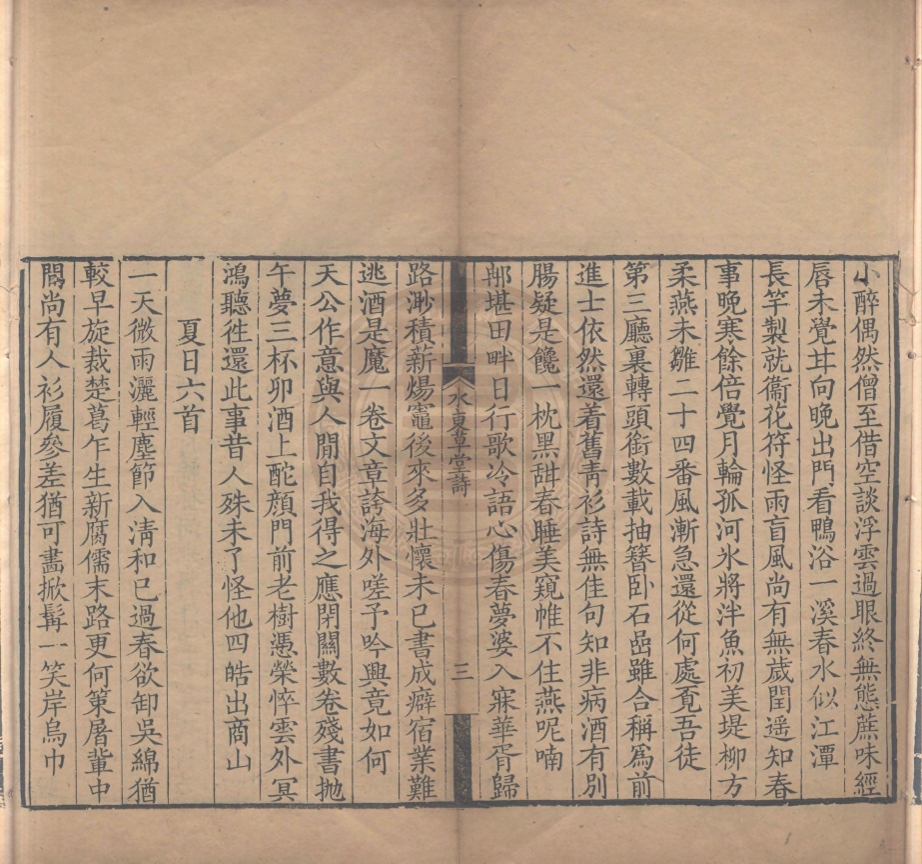 小醉偶然僧至借空談浮雲過眼終無態蔗味經
唇未覺甘向晚出門看鴨浴一溪春水似江潭
長竿製就衞花符怪雨盲風尚有無歲閏遥知春
事晚寒餘倍覺月輪孤河氷將泮魚初美堤柳方
柔燕未雛二十四番風漸急還從何處覔吾徒
第三廳裏轉頭銜數載抽簪卧石嵒雖合稱爲前
進士依然還着舊靑衫詩無佳句知非病酒有别
腸疑是饞一枕黑甜春睡美窺帷不住燕呢喃
那堪田畔日行歌冷語心傷春夢婆入寐華胥歸
水東草堂詩
三
路渺積新煬竈後來多壯懷未已書成癖宿業難
逃酒是魔一卷文章誇海外嗟予吟興竟如何
天公作意與人閒自我得之應閉關數卷殘書抛
午夢三杯卯酒上酡顔門前老樹憑榮悴雲外冥
鴻聽徃還此事昔人殊未了怪他四皓出商山
夏日六首
一天微雨灑輕塵節入淸和已過春欲卸吳綿猶
較早旋裁楚葛乍生新腐儒末路更何策屠輩中
間尚有人衫履參差猶可畵掀髯一笑岸烏巾